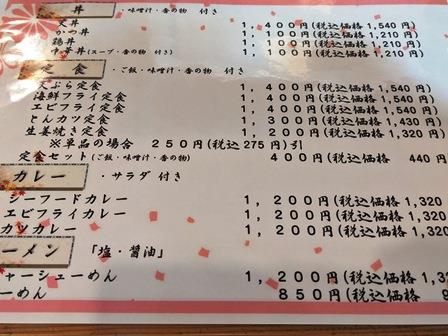 丼 ・味噌汁・香の物 付き
天丼 1,400円(税込価格 1,540円)
かつ丼 1,100円(税込価格 1,210円)
鶏丼 1,100円(税込価格 1,210円)
中華丼(スープ・香の物 付き) 1,100円(税込価格 1,210円)
定 食 ・ご飯・味噌汁・香の物 付き
天ぷら定食 1,400円(税込価格 1,540円)
海鮮フライ定食 1,400円(税込価格 1,540円)
エビフライ定食 1,400円(税込価格 1,540円)
とんカツ定食 1,300円(税込価格 1,430円)
生姜焼き定食 1,200円(税込価格 1,320円)
※単品の場合 250円(税込275円)引
定食セット(ご飯・味噌汁・香の物) 400円(税込価格 440円
カレー ・サラダ 付き
シーフードカレー 1,200円(税込価格 1,320
エビフライカレー 1,200円(税込価格 1,320
カツカレー 1,200円(税込価格 1,320
ーメン 「塩・醤油」
ャーシューめん 1,200円(税込価格 1,320
ーめん 850円(税込価格 9